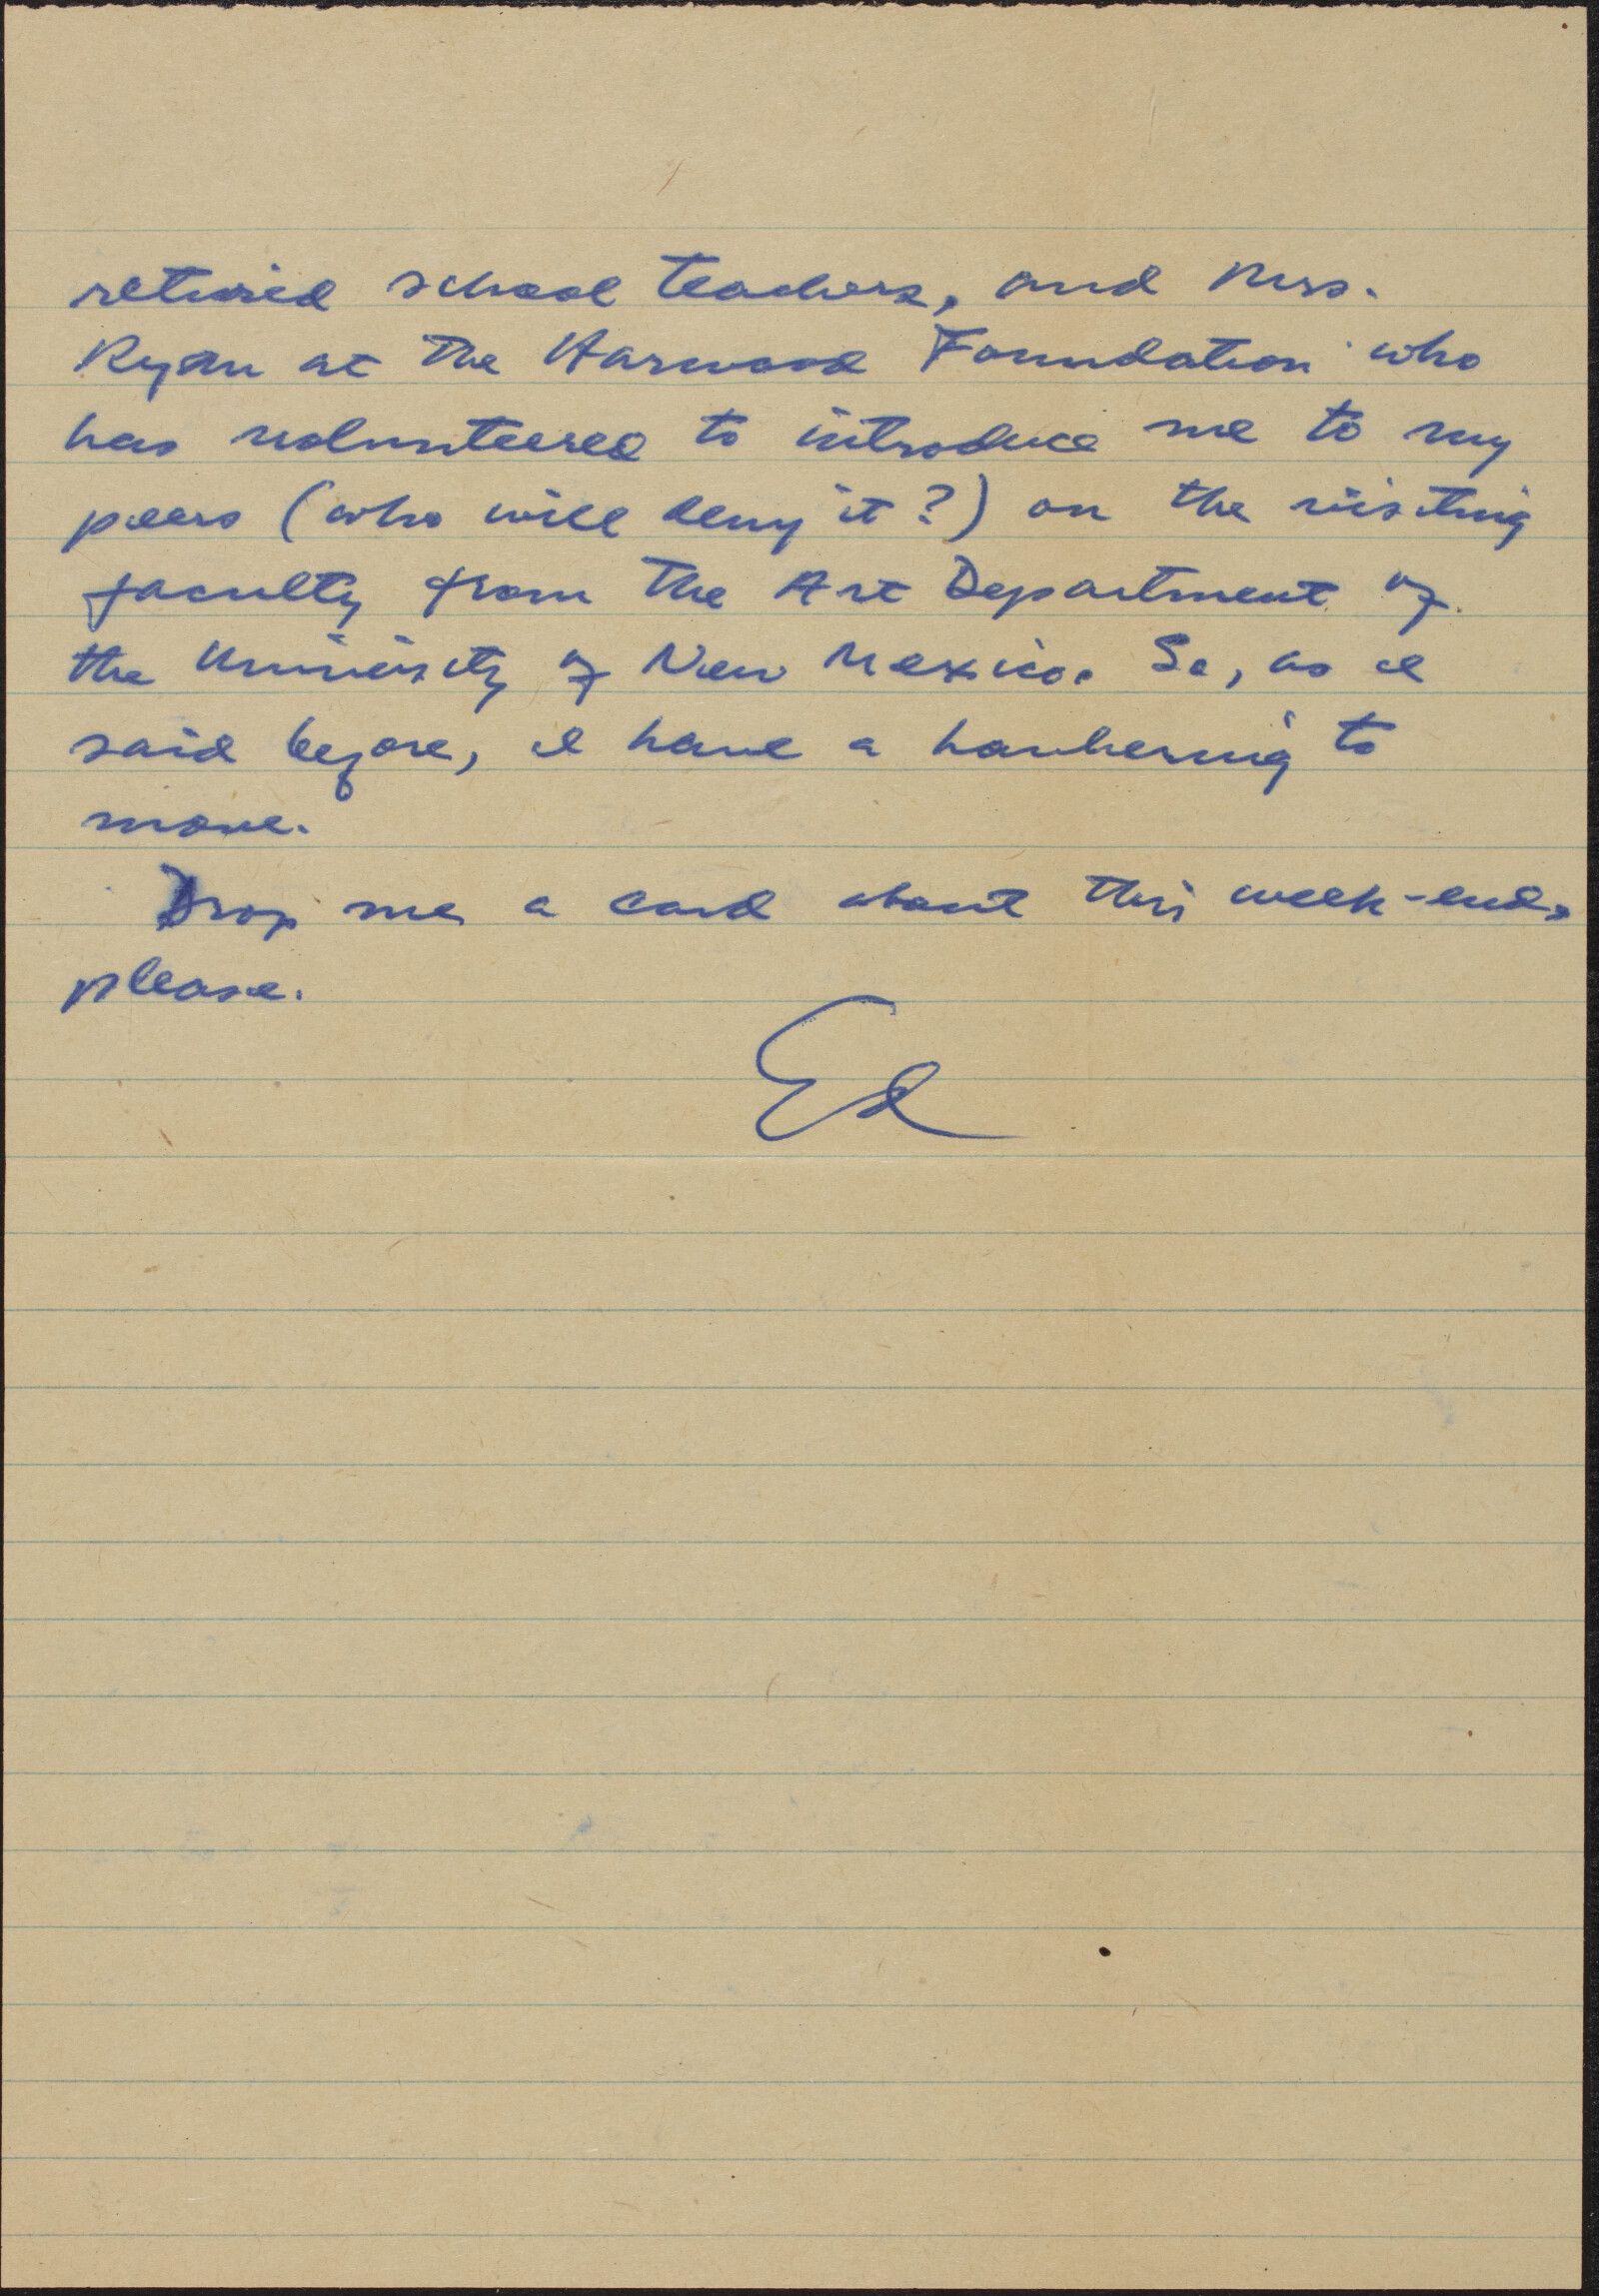 retired school teachers, and Mrs.
Ryan at the Harwood Foundation who
has volunteered to introduce me to my
peers (who will deny it?) on the visiting
faculty from the Art Department of
the University of New Mexico. So, as I
said before, I have a hankering to
move.
Drop me a card about this week-end,
please.
Ed